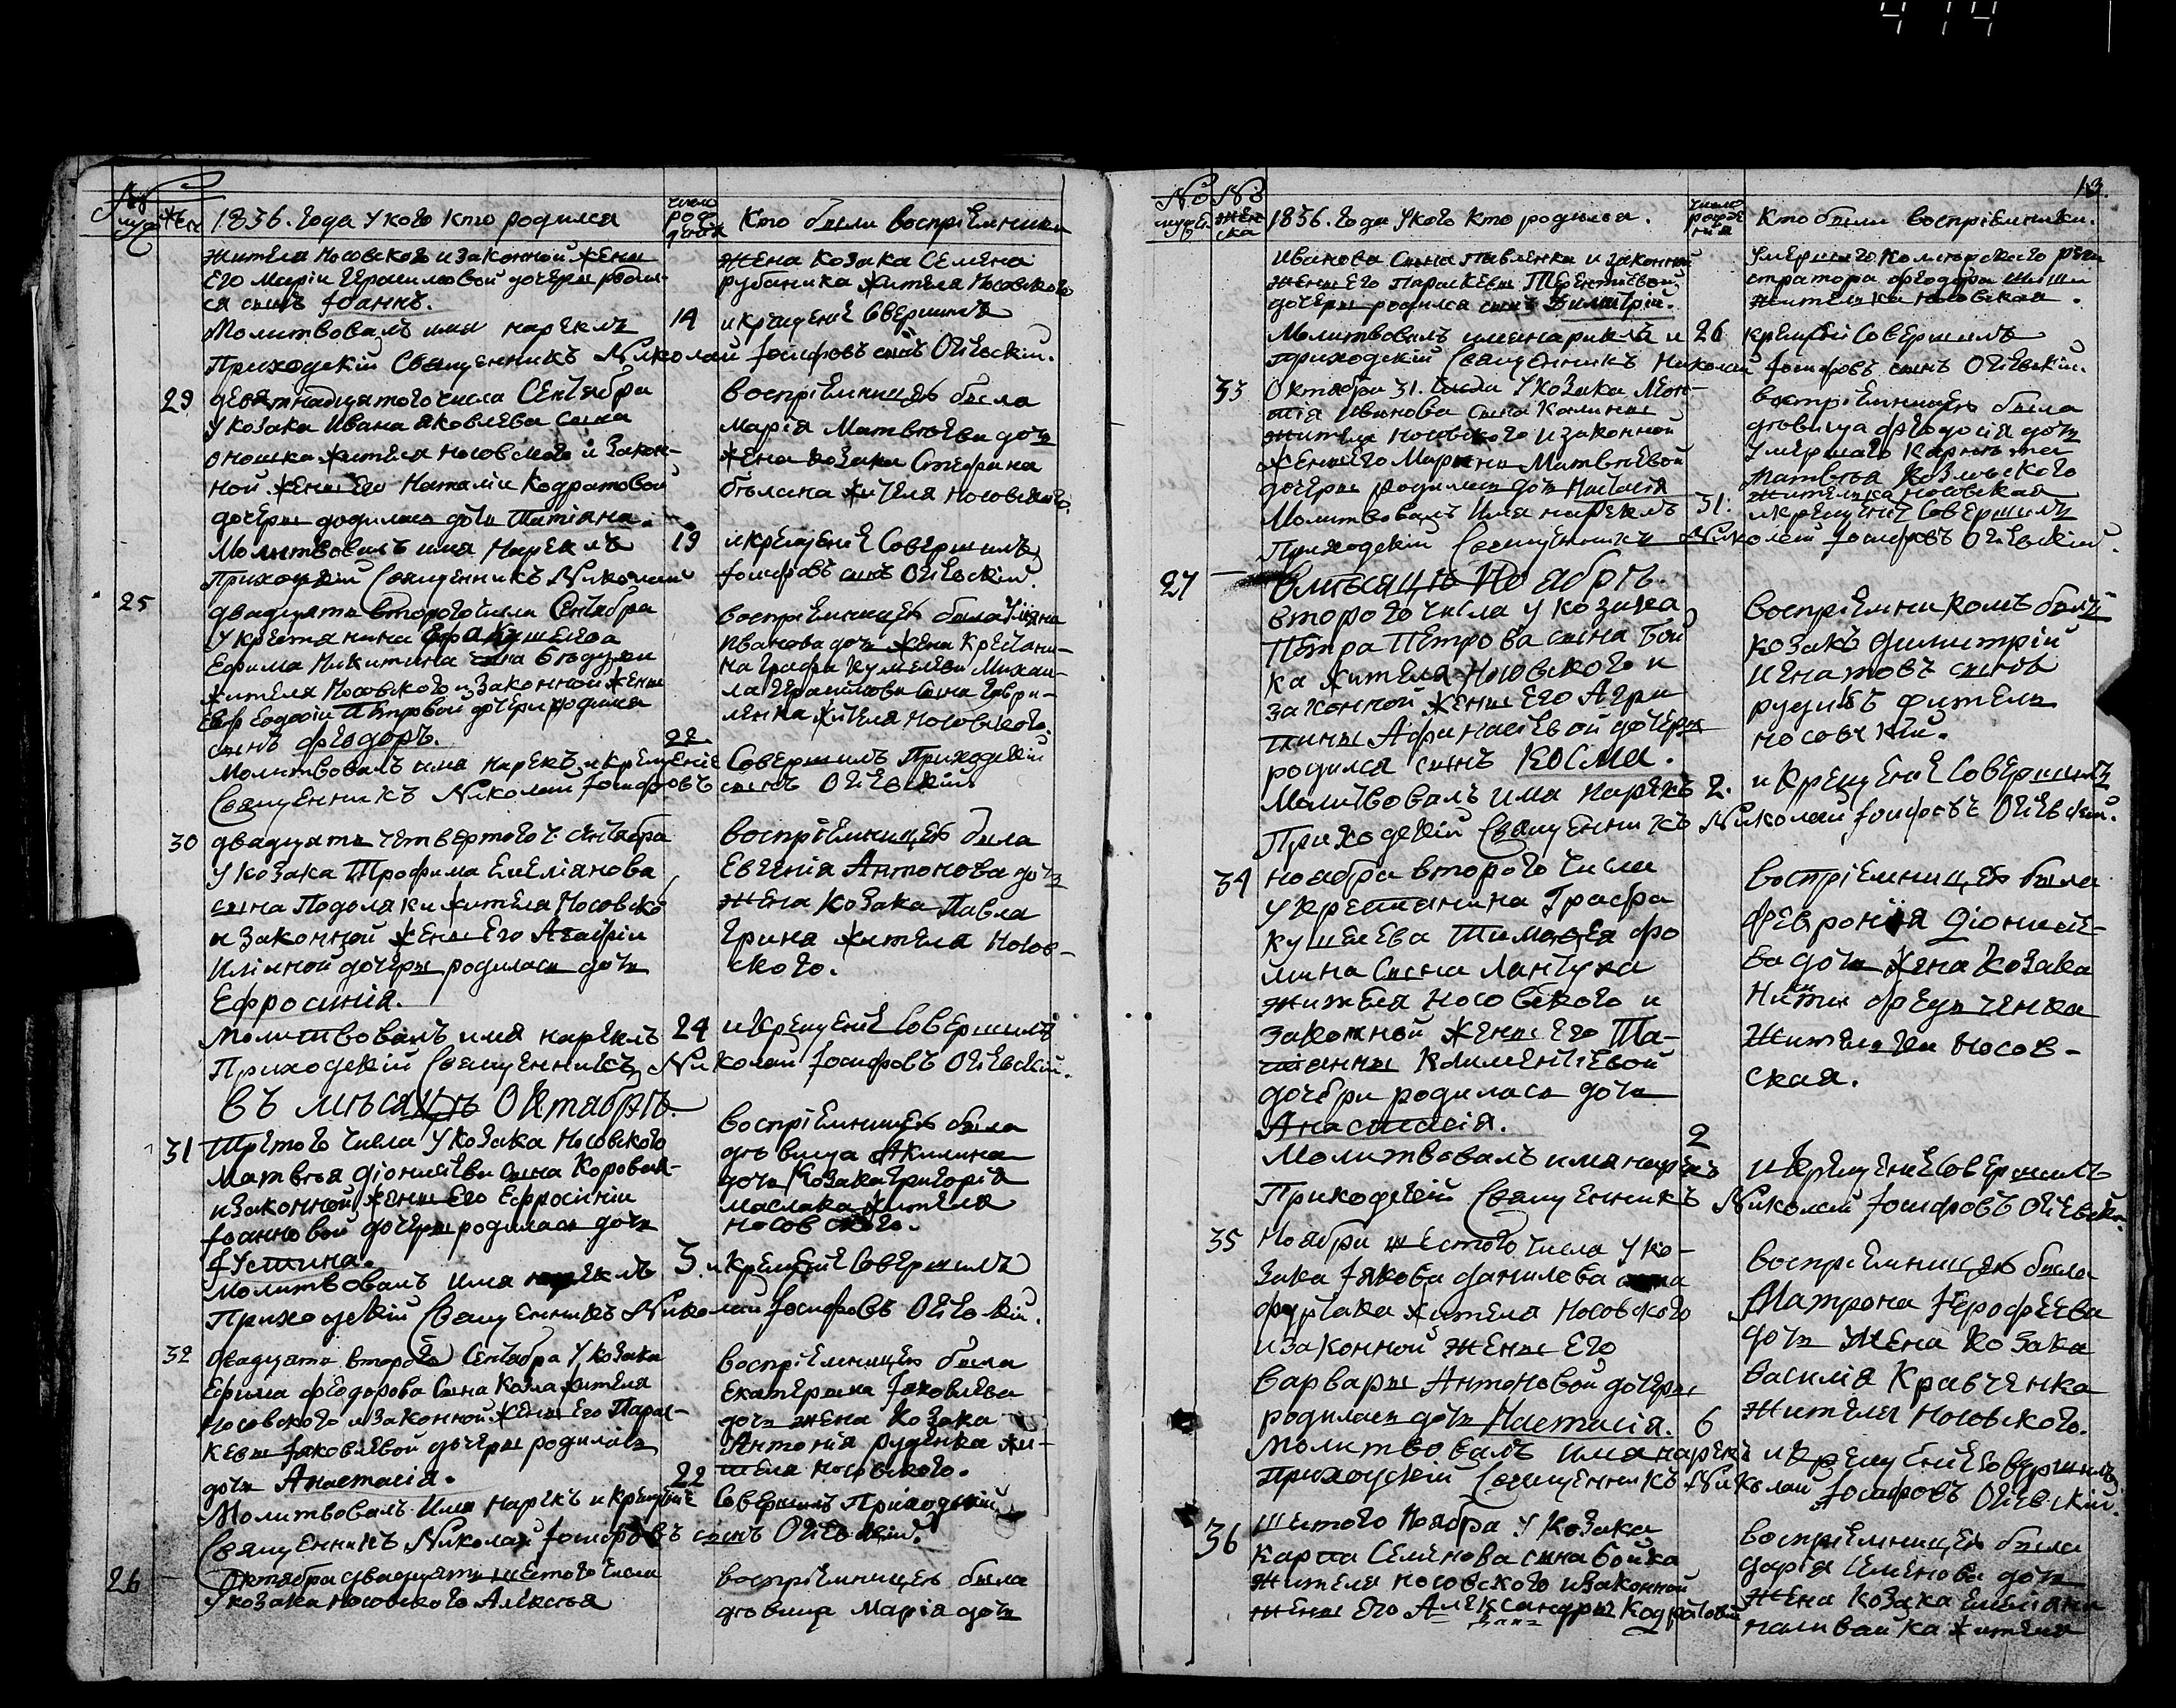 414
№
муж жен
1836. Года У кого кто родился
число рождения
Кто были восприемники
жителя Носовского и законной жены
Его Маріи Герасимовой дочеры родил-
ся сынъ Іоаннъ.
жена козака Семена
рубаника жителя Носовского
Молитвовалъ имя нарекъ 14 и крещеніе Совершилъ
Приходскій Священникъ Николай Іосифовъ сынъ Огіевскій.
29 девятнадцятого числа Сентября
У козака Ивана Яковлева сына
Оношка жителя Носовского и закон-
ной жены Его Наталіи Кодратовой
дочеры родилась дочь Татіана.
восприемницею была
Марія Матвѣева дочь
жена козака Стефана
бѣлана жителя Носовского.
Молитвовалъ имя Нарекъ 19 и крещеніе Совершилъ
Приходскій Священникъ Николай Іосифовъ сынъ Огіевскій.
25 двадцять второго числа Сентября
У крестянина Графа Кушелева
Ефима Никитина сына
жителя Носовского и законной жены
Евфодосіи Петровой дочери родился
сынъ Феодоръ.
восприемницею была Уліяна
Иванова дочь жена Крестяни-
на Графа Кушелева Михаи-
ла Герасимова сына Гаври-
ленка жителя Носовского.
22
Молитвовалъ имя нарекъ и крещеніе Совершилъ Приходскій
Священникъ Николай Іосифовъ сынъ Огіевскій
30 двадцять четвертого ч. Сентября
У козака Трофима Емеліянова
сына Подоляки жителя Носовско
и законной жены Его Агафіи
Иліиной дочеры родилась дочь
Ефросинія.
восприемницею была
Евгенія Антонова дочь
жена Козака Павла
Грина жителя Носов-
ского.
Молитвовалъ имя нарекъ 24 и Крещеніе Совершилъ
Приходскій Священникъ Николай Іосифовъ Огіевскій.
Въ мѣсяцѣ Октябрѣ.
31 Третого числа У козака Носовского
Матвѣя Діонисіева сына Коровая-
и законной жены Его Ефросиніи
Іоанновой дочеры родилась дочь
Іустина.
восприемницею была
девица Акилина
дочь Козака Григорія
маслака жителя
Носовского.
Молитвовалъ имя нарекъ 3. и Крещеніе Совершилъ
Приходскій Священникъ Николай Іосифовъ Огіевскій.
32 двадцять второго Сентября У козака
Ефима Феодорова Сына Козла жителя
Носовского и законной жены Его Парас-
кевы Яковлевой дочеры родилась
дочь Анастасія.
восприемницею была
Екатерына Яковлева
дочь жена Козака
Антонія Руденка жи-
теля Носовского.
22
Молитвовалъ Имя Нарекъ и Крещеніе Совершилъ Приходскій
Священникъ Николай Іосифовъ сынъ Огіевскій.
26 Октября двадцять шестого числа
У козака Носовского Алексѣя
восприемницею была
девица Марія дочь
13.
№ №
муже. женска
1836. Года У кого кто родился.
число рожденія
Кто были восприемники.
Иванова Сына Павленка и законной
жены Его Параскевы Терентіевой
дочеры родился сынъ Димитрій.
Умершого Коллежского реги
стратора Феодора
жителька Носовская.
Молитвовалъ имя нарекъ и 26 крещеніе Совершилъ
Приходскій Священникъ Николай Іосифовъ сынъ Огіевскій.
33 Октября 31. числа У козака
Иванова сына Калины
жителя Носовского и законной
жены Его Марины Матвѣевой
дочеры родилась дочь Настасія
восприемницею была
девица Феодосія дочь
Умершаго
Матвѣя Козловского
жителька Носовская
Молитвовалъ Имя нарекъ 31. и крещеніе Совершилъ
Приходскій Священникъ Николай Іосифовъ Огіевскій.
Вмѣсяцѣ Ноябрѣ.
27 второго числа У козака
Петра Петрова сына Бой
ка жителя Носовского и
законной жены Его Агри
пины Афанасіевой дочеры
родился сынъ Косма.
восприемникомъ былъ
козакъ Димитрій
Игнатовъ сынъ
рудикъ житель
носовскій.
Молитвовалъ имя Нарекъ 2. и Крещеніе Совершилъ
Приходскій Священникъ Николай Іосифовъ Огіевскій.
34 Ноября второго числа
У Крестянина Графа
Кушелева Тимофея Фо
мина сына Лантуха
жителя Носовского и
законной жены Его Та-
тіанны Климентіевой
дочеры родилась дочь
Анастасія.
восприемницею была
Феvронія Діонисіе-
ва дочь жена Козака
Никиты
жителька Носов-
ская.
2
Молитвовалъ имя нарекъ и Крещеніе Совершилъ
Приходскій Священникъ Николай Іосифовъ Огіевскій.
35 Ноября шестого числа У ко-
зака Іякова Данилова сына
Фурсака жителя Носовского
и законной жены Его
Варвары Антоновой дочеры
родилась дочь Настасія.
восприемницею была
Матрона Іерофеева
дочь жена Козака
Василія Кравченка
жителя Носовского.
6
Молитвовалъ имя нарекъ и Крещеніе Совершилъ
приходскій Священникъ Николай Іосифовъ Огіевскій.
36 шестого Ноября У Козака
Карпа Семенова сына бойка
жителя носовского и законной
жены Его Александры Кодратовой
восприемницею была
Дарія Семенова дочь
жена Козака Емеліяна
наливайка жителя